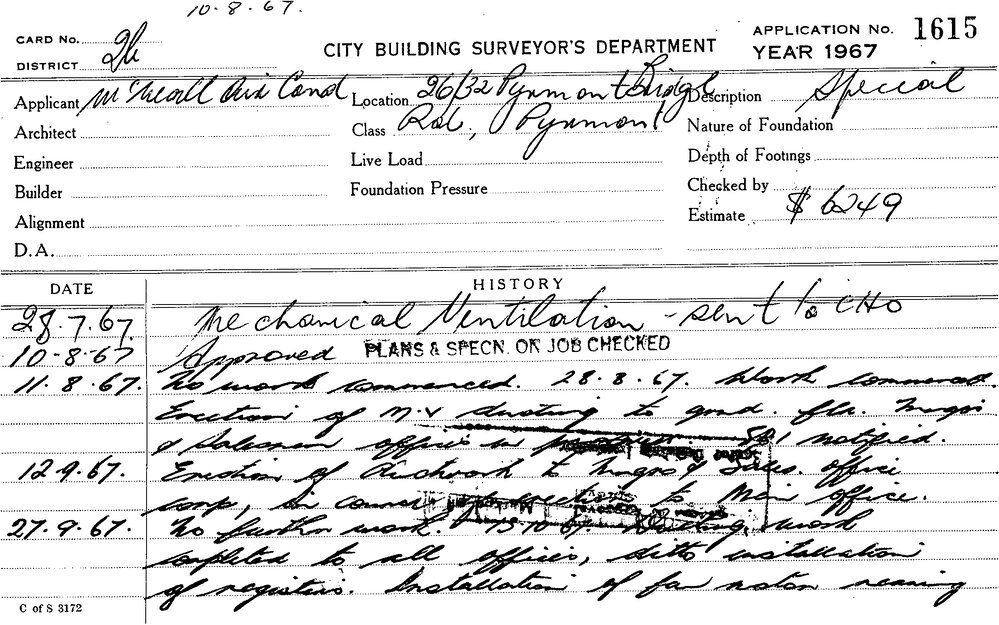 10.8.67.
CARD No. 2b
DISTRICT
CITY BUILDING SURVEYOR'S DEPARTMENT
APPLICATION No. 1615
YEAR 1967
Applicant McNeall Air Cond
Location 26/32 Pyrmont Bridge
Description Special
Architect
Class Rd, Pyrmont
Nature of Foundation
Engineer
Live Load
Depth of Footings
Builder
Foundation Pressure
Checked by
Alignment
Estimate $6249
D.A.
DATE
HISTORY
28.7.67. Mechanical Ventilation - sent to CHO
10-8-67 Approved PLANS & SPECN. ON JOB CHECKED
11.8.67. No work commenced. 28.8.67. Work commenced.
Erection of M.V ducting to grnd. flr. Mngrs
& Salesmen offices in notified.
12.9.67. Erection of Ductwork to Mngrs & Sales. office
comp, in course to Main office.
27.9.67. No further work. 13.10.67 Ducting work
completed to all offices, ditto installation
of registers. Installation of fan motor nearing
C of S 3172